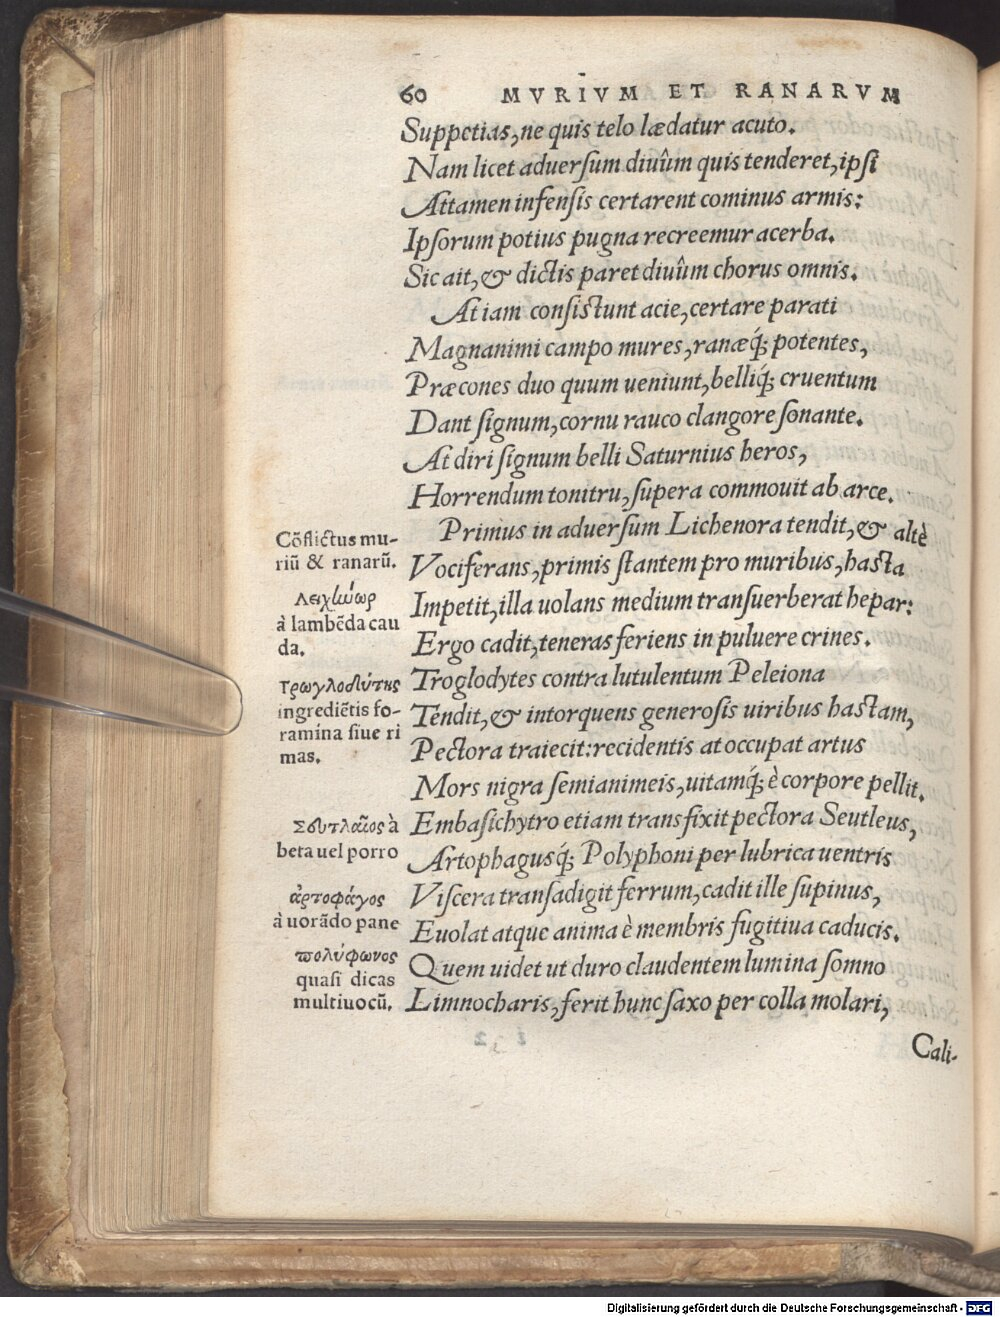 60 MVRIVM ET RANARVM
Suppetias, ne quis telo lædatur acuto.
Nam licet aduersum diuûm quis tenderet, ipsi
Attamen infensis certarent cominus armis:
Ipsorum potius pugna recreemur acerba.
Sic ait, & dictis paret diuûm chorus omnis.
At iam consistunt acie, certare parati
Magnanimi campo mures, ranæq́; potentes,
Præcones duo quum ueniunt, belliq́; cruentum
Dant signum, cornu rauco clangore sonante.
At diri signum belli Saturnius heros,
Horrendum tonitru, supera commouit ab arce.
Primus in aduersum Lichenora tendit, & altè
Vociferans, primis stantem pro muribus, hasta
Impetit, illa uolans medium transuerberat hepar:
Ergo cadit, teneras feriens in puluere crines.
Troglodytes contra lutulentum Peleiona
Tendit, & intorquens generosis uiribus hastam,
Pectora traiecit: recidentis at occupat artus
Mors nigra semianimeis, uitamq́; è corpore pellit.
Embasichytro etiam transfixit pectora Seutleus,
Artophagusq́; Polyphoni per lubrica uentris
Viscera transadigit ferrum, cadit ille supinus,
Euolat atque anima è membris fugitiua caducis.
Quem uidet ut duro claudentem lumina somno
Limnocharis, ferit hunc saxo per colla molari,
Cali-
Cõflictus mu-
riũ & ranarũ.
Λειχήνωρ
à lambẽda cau
da.
τρωγλοδύτης
ingrediẽtis fo-
ramina siue ri
mas.
Σευτλαῖος à
beta uel porro
ἀρτοφάγος
à uorãdo pane
πολύφωνος
quasi dicas
multiuocũ.
Digitalisierung gefördert durch die Deutsche Forschungsgemeinschaft - DFG